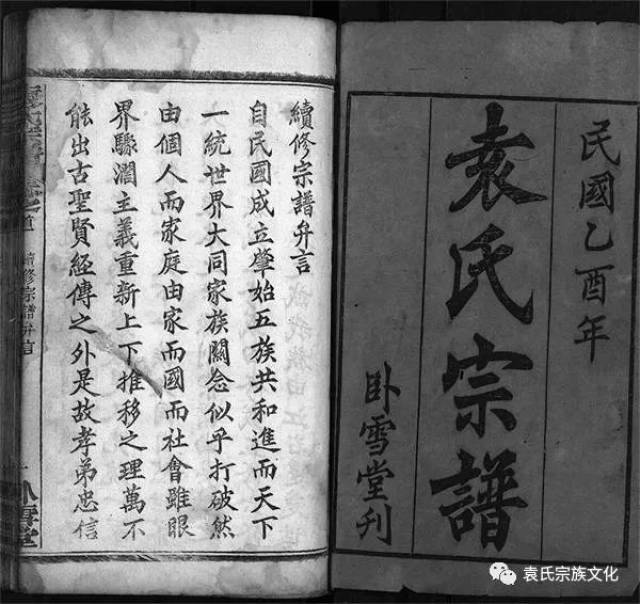 民國乙酉年
袁氏宗譜
卧雪堂刋
續修宗譜弁言
自民國成立肇始五族共和進而天下
一統世界大同家族關念似乎打破然
由個人而家庭由家而國而社會雖眼
界驟濶主義重新上下推移之理萬不
能出古聖賢經傳之外是故孝弟忠信
續修宗譜弁言
卧雪堂
袁氏宗族文化